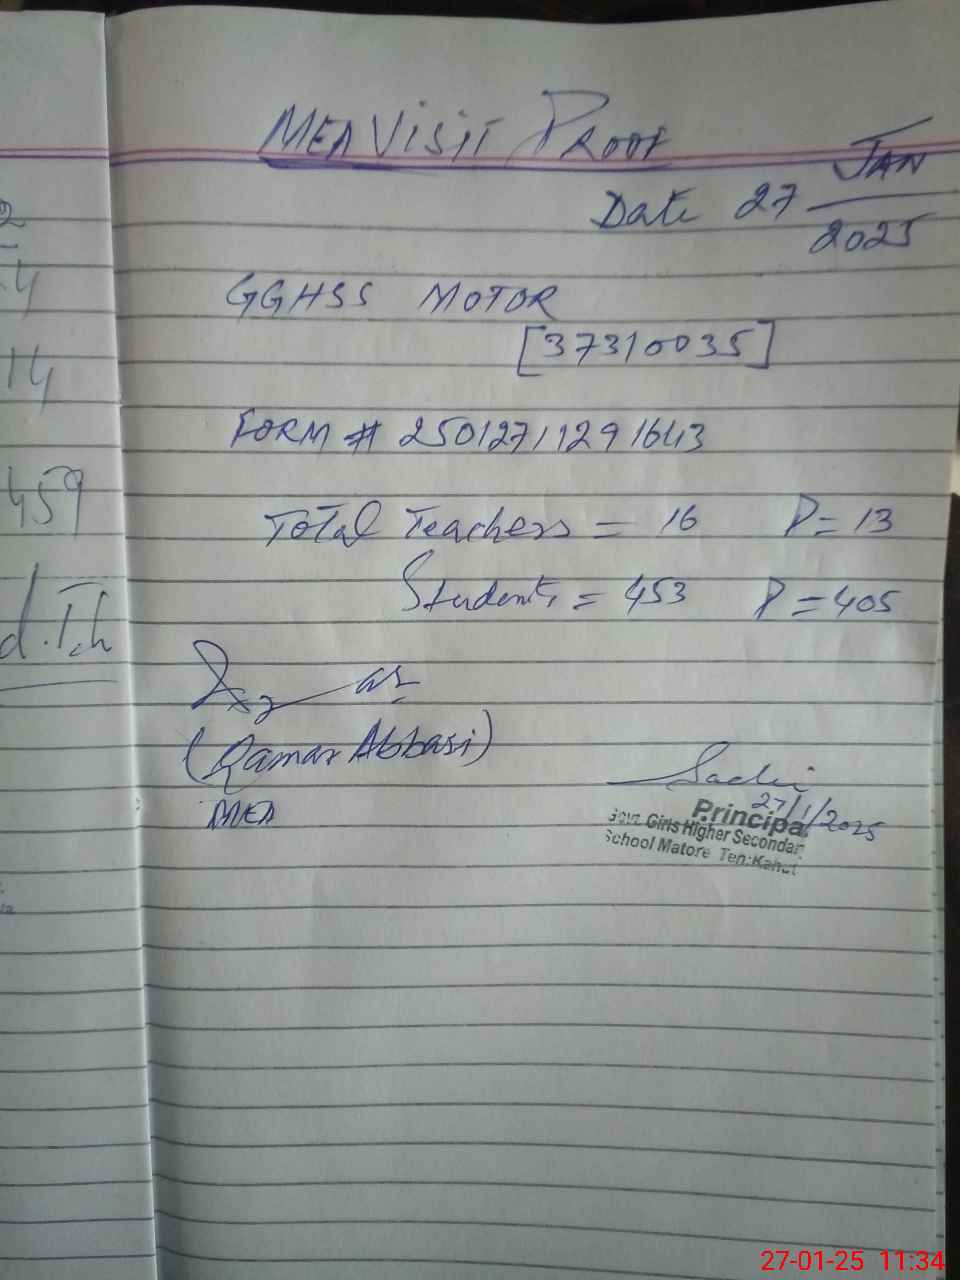 MEA VISIT PROOF
Date 27 JAN
2025
GGHSS MOTOR
[37310035]
FORM # 25012711291643
Total Teachers = 16 P = 13
Students = 453 P = 405
(Qamar Abbasi)
MEA
27/1/2025
Principal
Govt. Girls Higher Secondar
School Matore Teh: Kahut
14
459
d. Tch
27-01-25 11:34